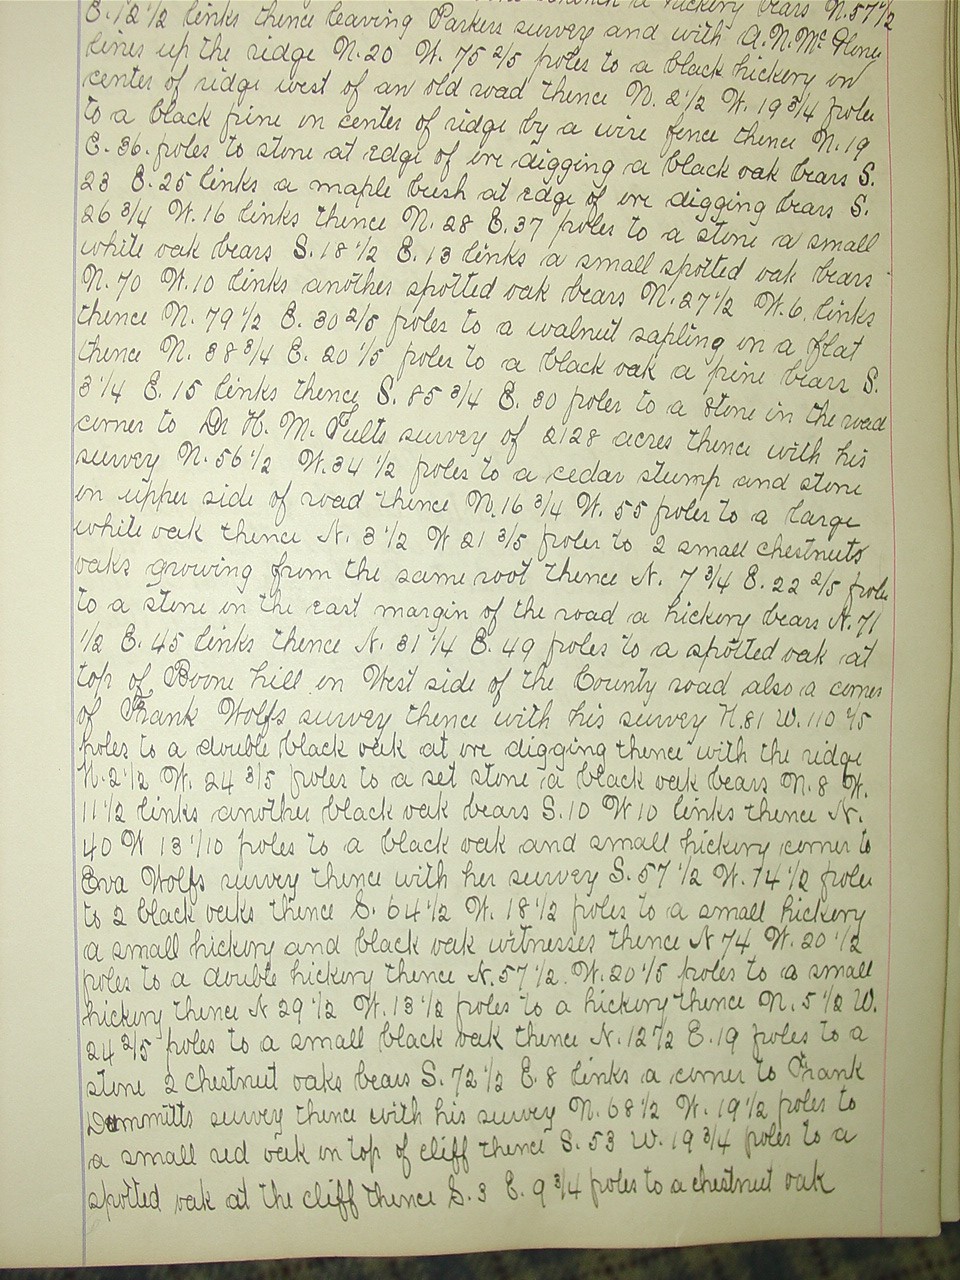 a hickory bears N.57 1/2
E. 12 1/2 links thence leaving Parkers survey and with A.N.Mc
lines up the ridge N. 20 W. 75 2/5 poles to a black hickory on
center of ridge west of an old road thence N. 2 1/2 W. 19 3/4 poles
to a black pine on center of ridge by a wire fence thence N. 19
E. 36. poles to stone at edge of ore digging a black oak bears S.
23 E. 25 links a maple bush at edge of ore digging bears S.
26 3/4 W. 16 links thence N. 28 E. 37 poles to a stone a small
white oak bears S. 18 1/2 E. 13 links a small spotted oak bears
N. 70 W. 10 links another spotted oak bears N. 27 1/2 W. 6. links
thence N. 79 1/2 E. 30 2/5 poles to a walnut sapling on a flat
thence N. 38 3/4 E. 20 1/5 poles to a black oak a pine bears S.
3 1/4 E. 15 links thence S. 85 3/4 E. 30 poles to a stone in the road
corner to Dr H. M. Pults survey of 2128 acres thence with his
survey N. 56 1/2 W. 34 1/2 poles to a cedar stump and stone
on upper side of road thence N. 16 3/4 W. 55 poles to a large
white oak thence N. 3 1/2 W 21 3/5 poles to 2 small chestnuts
oaks growing from the same root thence N. 7 3/4 E. 22 2/5 poles
to a stone in the east margin of the road a hickory bears N. 71
1/2 E. 45 links thence N. 31 1/4 E. 49 poles to a spotted oak at
top of Boone hill on West side of the County road also a corner
of Frank Wolfs survey thence with his survey N. 81 W. 110 2/5
poles to a double black oak at ore digging thence with the ridge
N. 2 1/2 W. 24 3/5 poles to a set stone a black oak bears N. 8 W.
11 1/2 links another black oak bears S. 10 W 10 links thence N.
40 W 13 1/10 poles to a black oak and small hickory corner to
Eva Wolfs survey thence with her survey S. 57 1/2 W. 74 1/2 poles
to 2 black oaks thence S. 64 1/2 W. 18 1/2 poles to a small hickory
a small hickory and black oak witnesses thence N 74 W. 20 1/2
poles to a double hickory thence N. 57 1/2. W. 20 1/5 poles to a small
hickory thence N 29 1/2 W. 13 1/2 poles to a hickory thence N. 5 1/2 W.
24 2/5 poles to a small black oak thence N. 12 1/2 E. 19 poles to a
stone 2 chestnut oaks bears S. 72 1/2 E. 8 links a corner to Frank
Dammitts survey thence with his survey N. 68 1/2 W. 19 1/2 poles to
a small red oak on top of cliff thence S. 53 W. 19 3/4 poles to a
spotted oak at the cliff thence S. 3 E. 9 3/4 poles to a chestnut oak